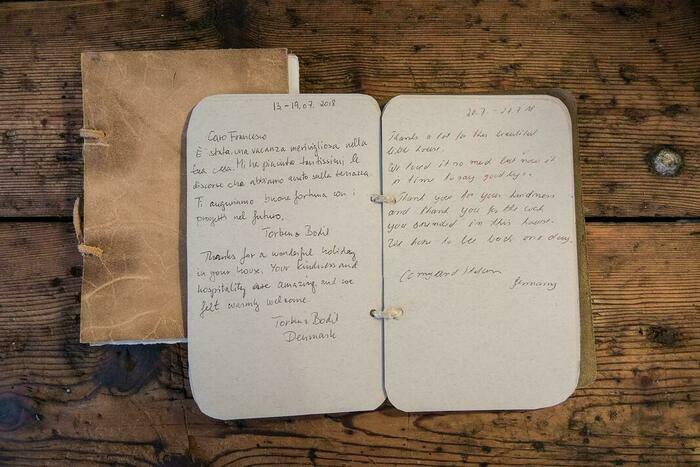 13-19.07.2018
Caro Francesco
È stata una vacanza meravigliosa nella
tua casa. Mi ha piaciuto tantissimi le
discorse che abbiamo avuto sulla terrazza.
Ti auguriamo buone fortuna con i
progetti nel futuro.
Torben & Bodil
Thanks for a wonderful holiday
in your house. Your kindness and
hospitality are amazing, and we
felt warmly welcome.
Torben & Bodil
Denmark
Thanks a lot for this beautiful
little house.
We loved it so much but now it
is time to say goodbye.
Thank you for your kindness
and thank you for the work
you in this house.
We hope to be back one day.
and
Germany